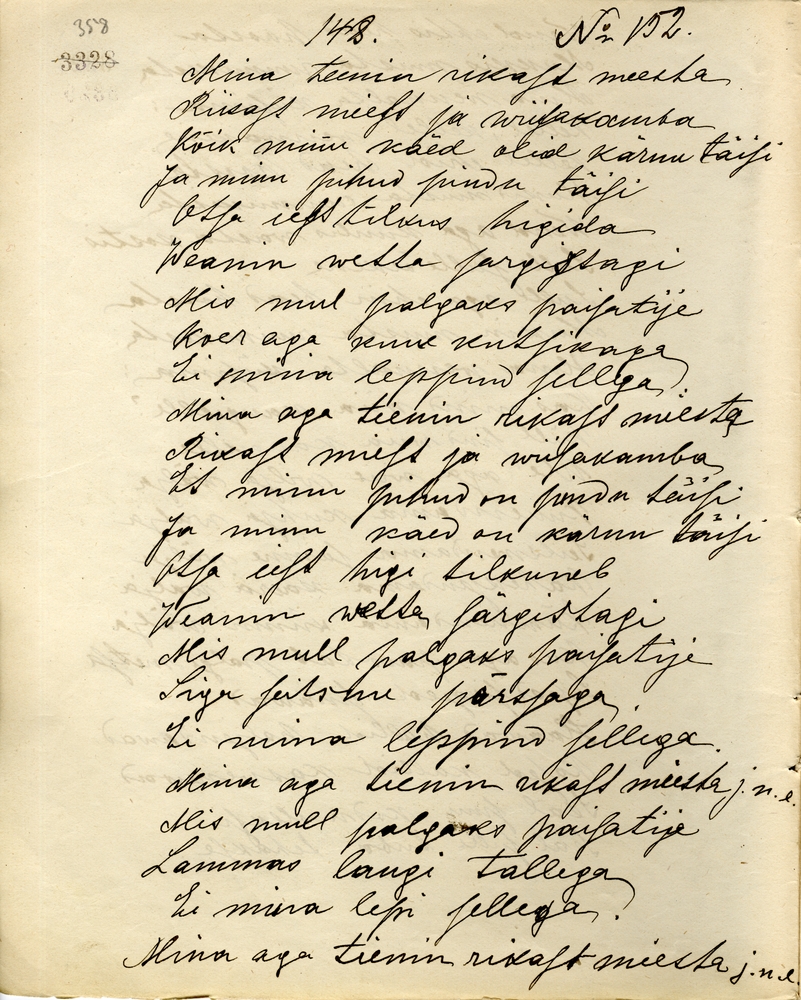 358
3328
148. No 152.
Mina teenin rikast meesta
Riikast miest ja wiisakamba
Kõik minu käed olid kärnu täisi
Ja minu pihud pindu täisi
Otsa iest tilkus higida
Weanin wetta sargistagi
Mis mul palgaks paisatije
Koer aga kuue kutsikaga
Ei mina leppind sellega.
Mina aga tienin rikast miesta
Rikast miest ja wiisakamba
Et minu pihud on pindu täisi
Ja minu käed on kärnu täisi
Otsa iest higi tilkuneb
Weanin wetta särgistagi
Mis mull palgaks paisatije
Siga seitsme põrssaga
Ei mina leppind sellega.
Mina aga tienin rikast miesta j.n.e.
Mis mull palgaks paisatije
Lammas laugi tallega
Ei mina lepi sellega.
Mina aga tienin rikast miesta j.n.e.